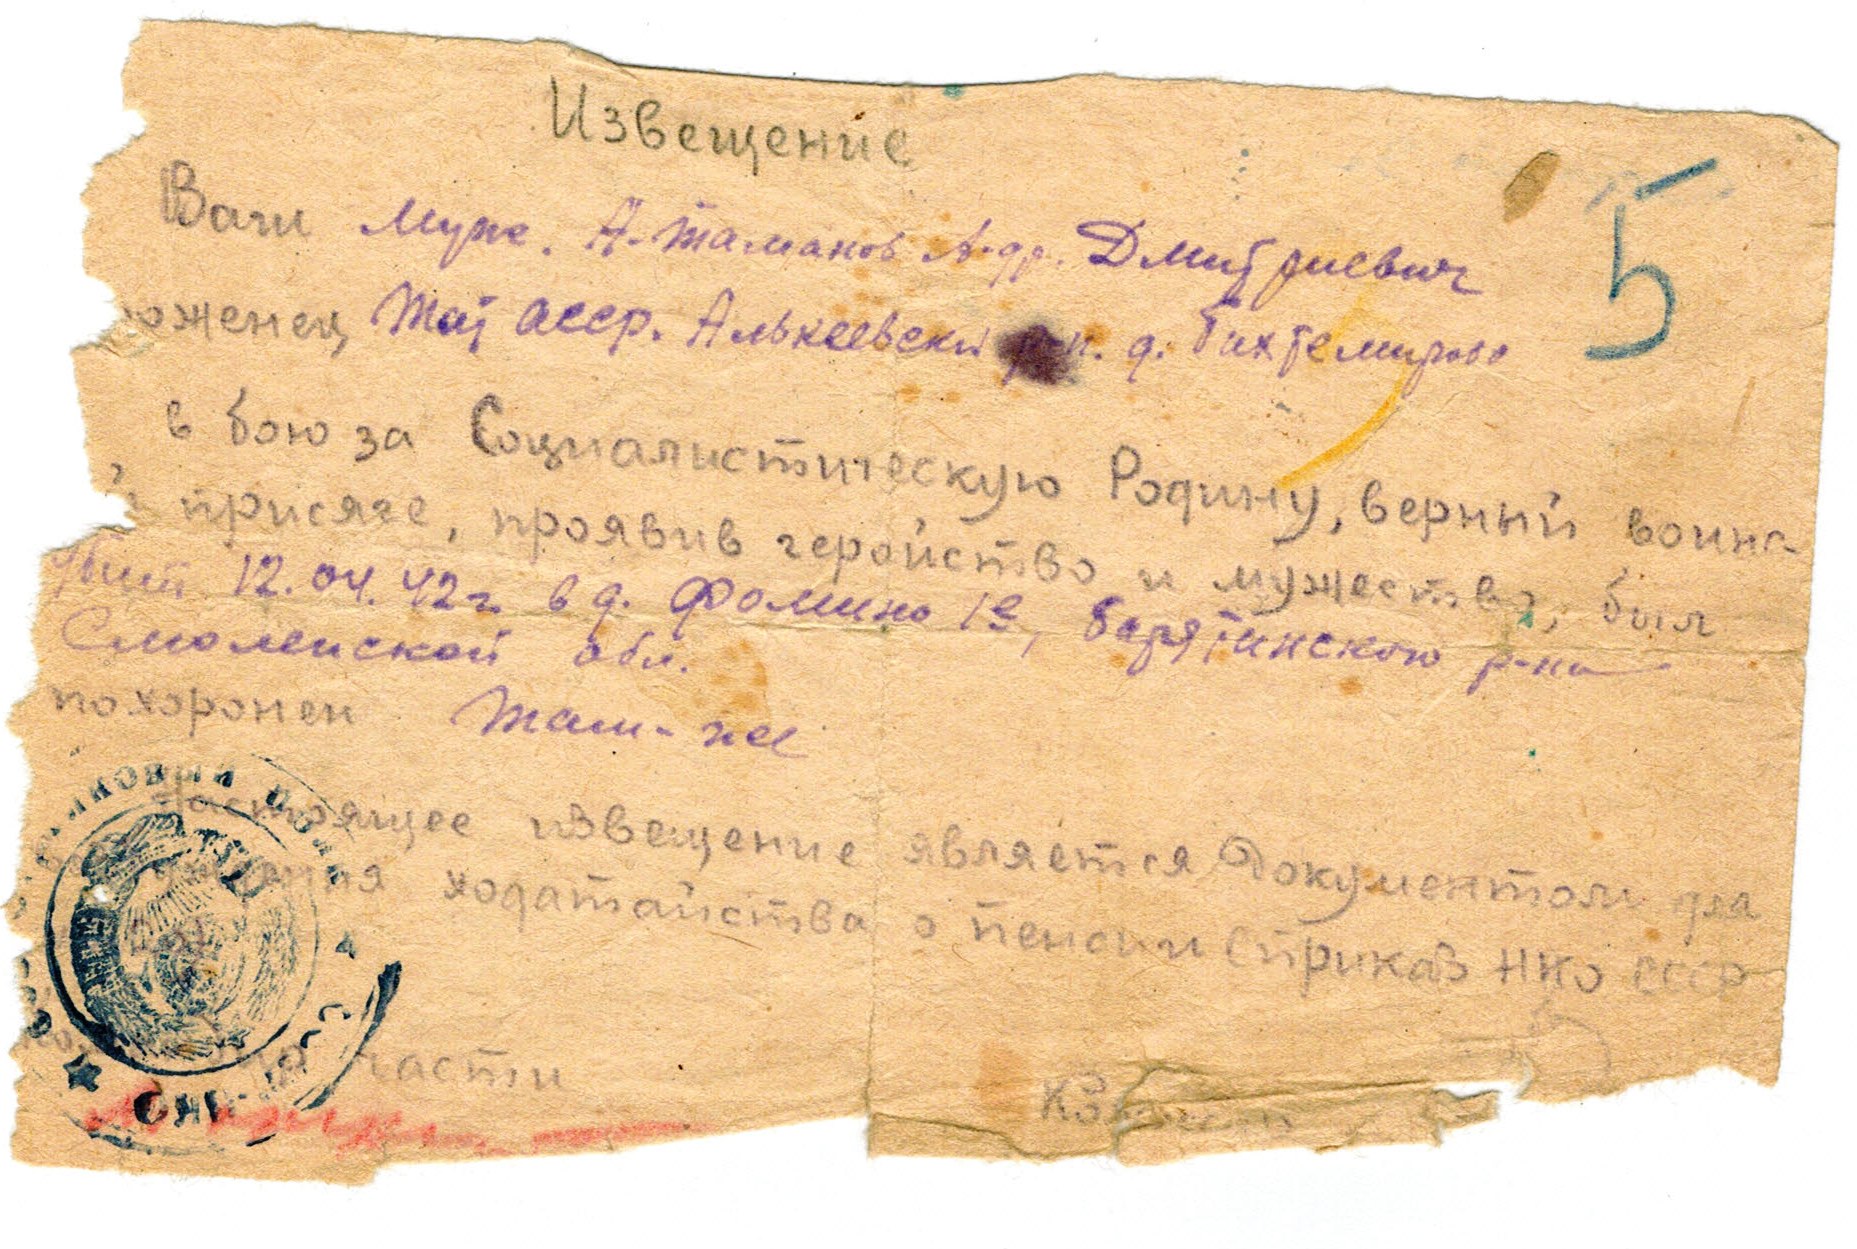 Извещение
5
Ваш муж. А-таманов А-др. Дмитриевич
оженец Тат АССР. Алькеевски р-н. д. Бихтемирово
в бою за Социалистическую Родину, верный воинс-
й присяге, проявив геройство и мужество, был
убит 12.04.42г в д. Фомино 1е, Барятинского р-на
Смоленской обл.
похоронен Там-же
Настоящее извещение является документом для
ходатайства о пенсии (приказ НКО СССР
части